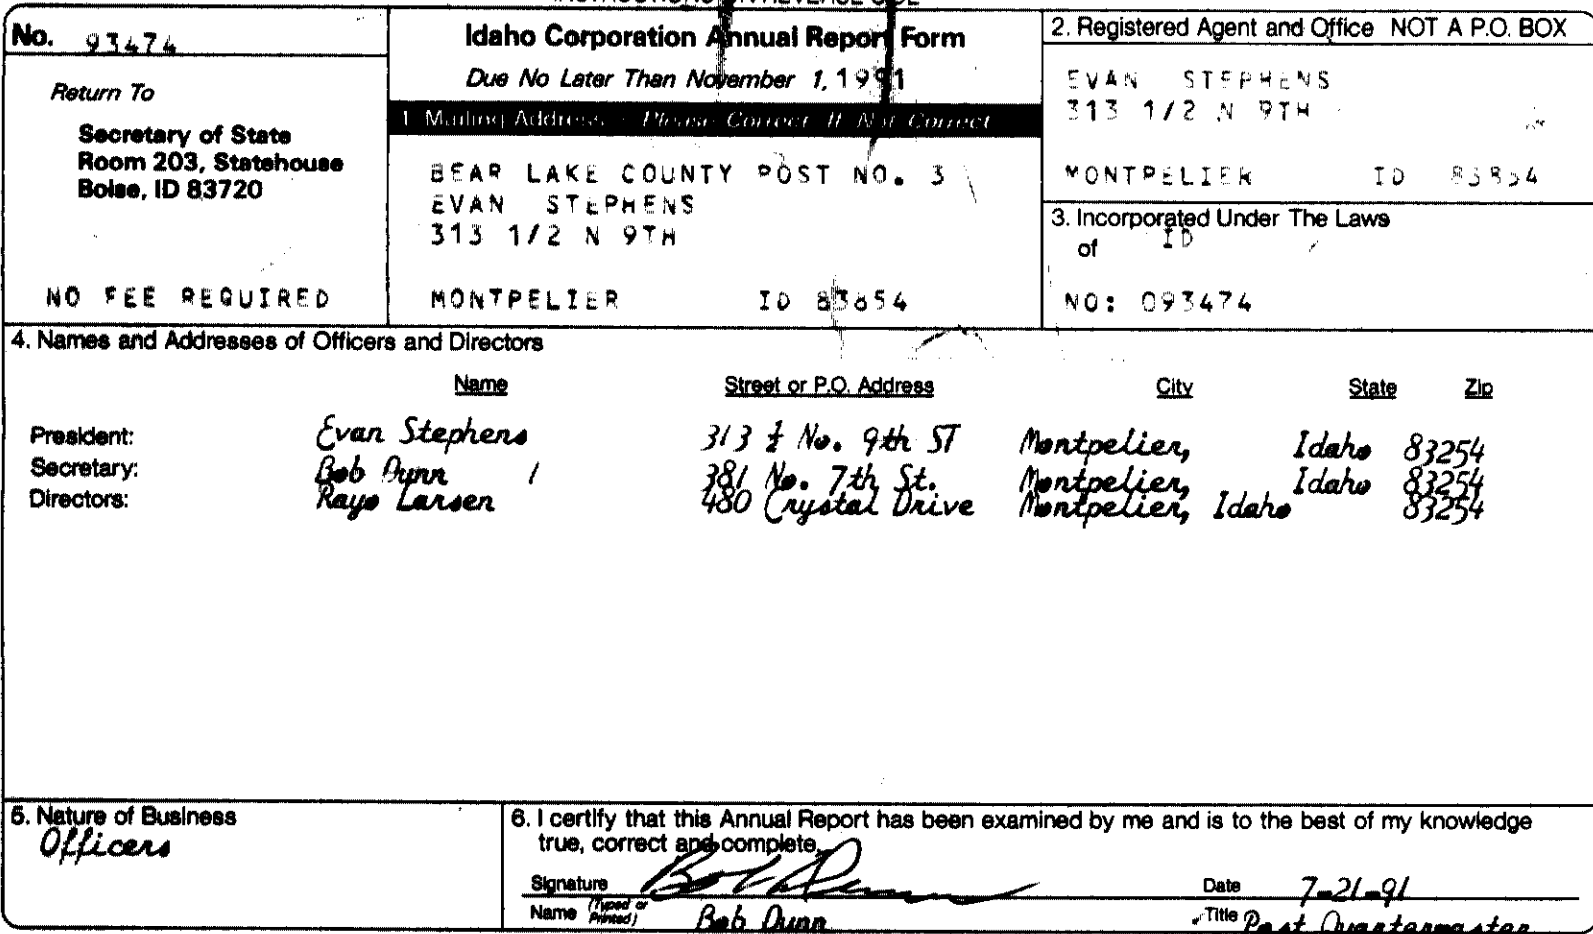 No. 93474
Return To
Secretary of State
Room 203, Statehouse
Boise, ID 83720
NO FEE REQUIRED
Idaho Corporation Annual Report Form
Due No Later Than November 1, 1991
1. Mailing Address - Please Correct If Not Correct
BEAR LAKE COUNTY POST NO. 3
EVAN STEPHENS
313 1/2 N 9TH
MONTPELIER ID 83854
2. Registered Agent and Office NOT A P.O. BOX
EVAN STEPHENS
313 1/2 N 9TH
MONTPELIER ID 83854
3. Incorporated Under The Laws
of ID
NO: 093474
4. Names and Addresses of Officers and Directors
Name Street or P.O. Address City State Zip
President: Evan Stephens 313 ½ No. 9th ST Montpelier, Idaho 83254
Secretary: Bob Dunn 381 No. 7th St. Montpelier, Idaho 83254
Directors: Rayo Larsen 480 Crystal Drive Montpelier, Idaho 83254
5. Nature of Business
Officers
6. I certify that this Annual Report has been examined by me and is to the best of my knowledge
true, correct and complete.
Signature Bob Dunn Date 7-21-91
Name (Typed or Printed) Bob Dunn Title Post Quartermaster